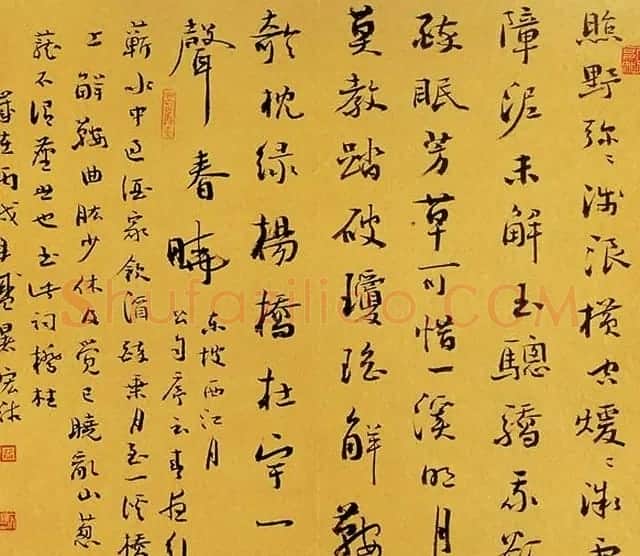 照野弥弥淺浪橫空暖暖微
障泥未解玉驄驕我欲
醉眠芳草可惜一溪明月
莫教踏破瓊瑤解鞍
欹枕綠楊橋杜宇一
聲春曉
東坡西江月
公自序云春夜行
蘄水中過酒家飲酒醉乘月至一溪橋
上解鞍曲肱少休及覺已曉亂山蔥
蘢不謂塵世也書此詞橋柱
歲在丙戌年
Shufaziliao.COM